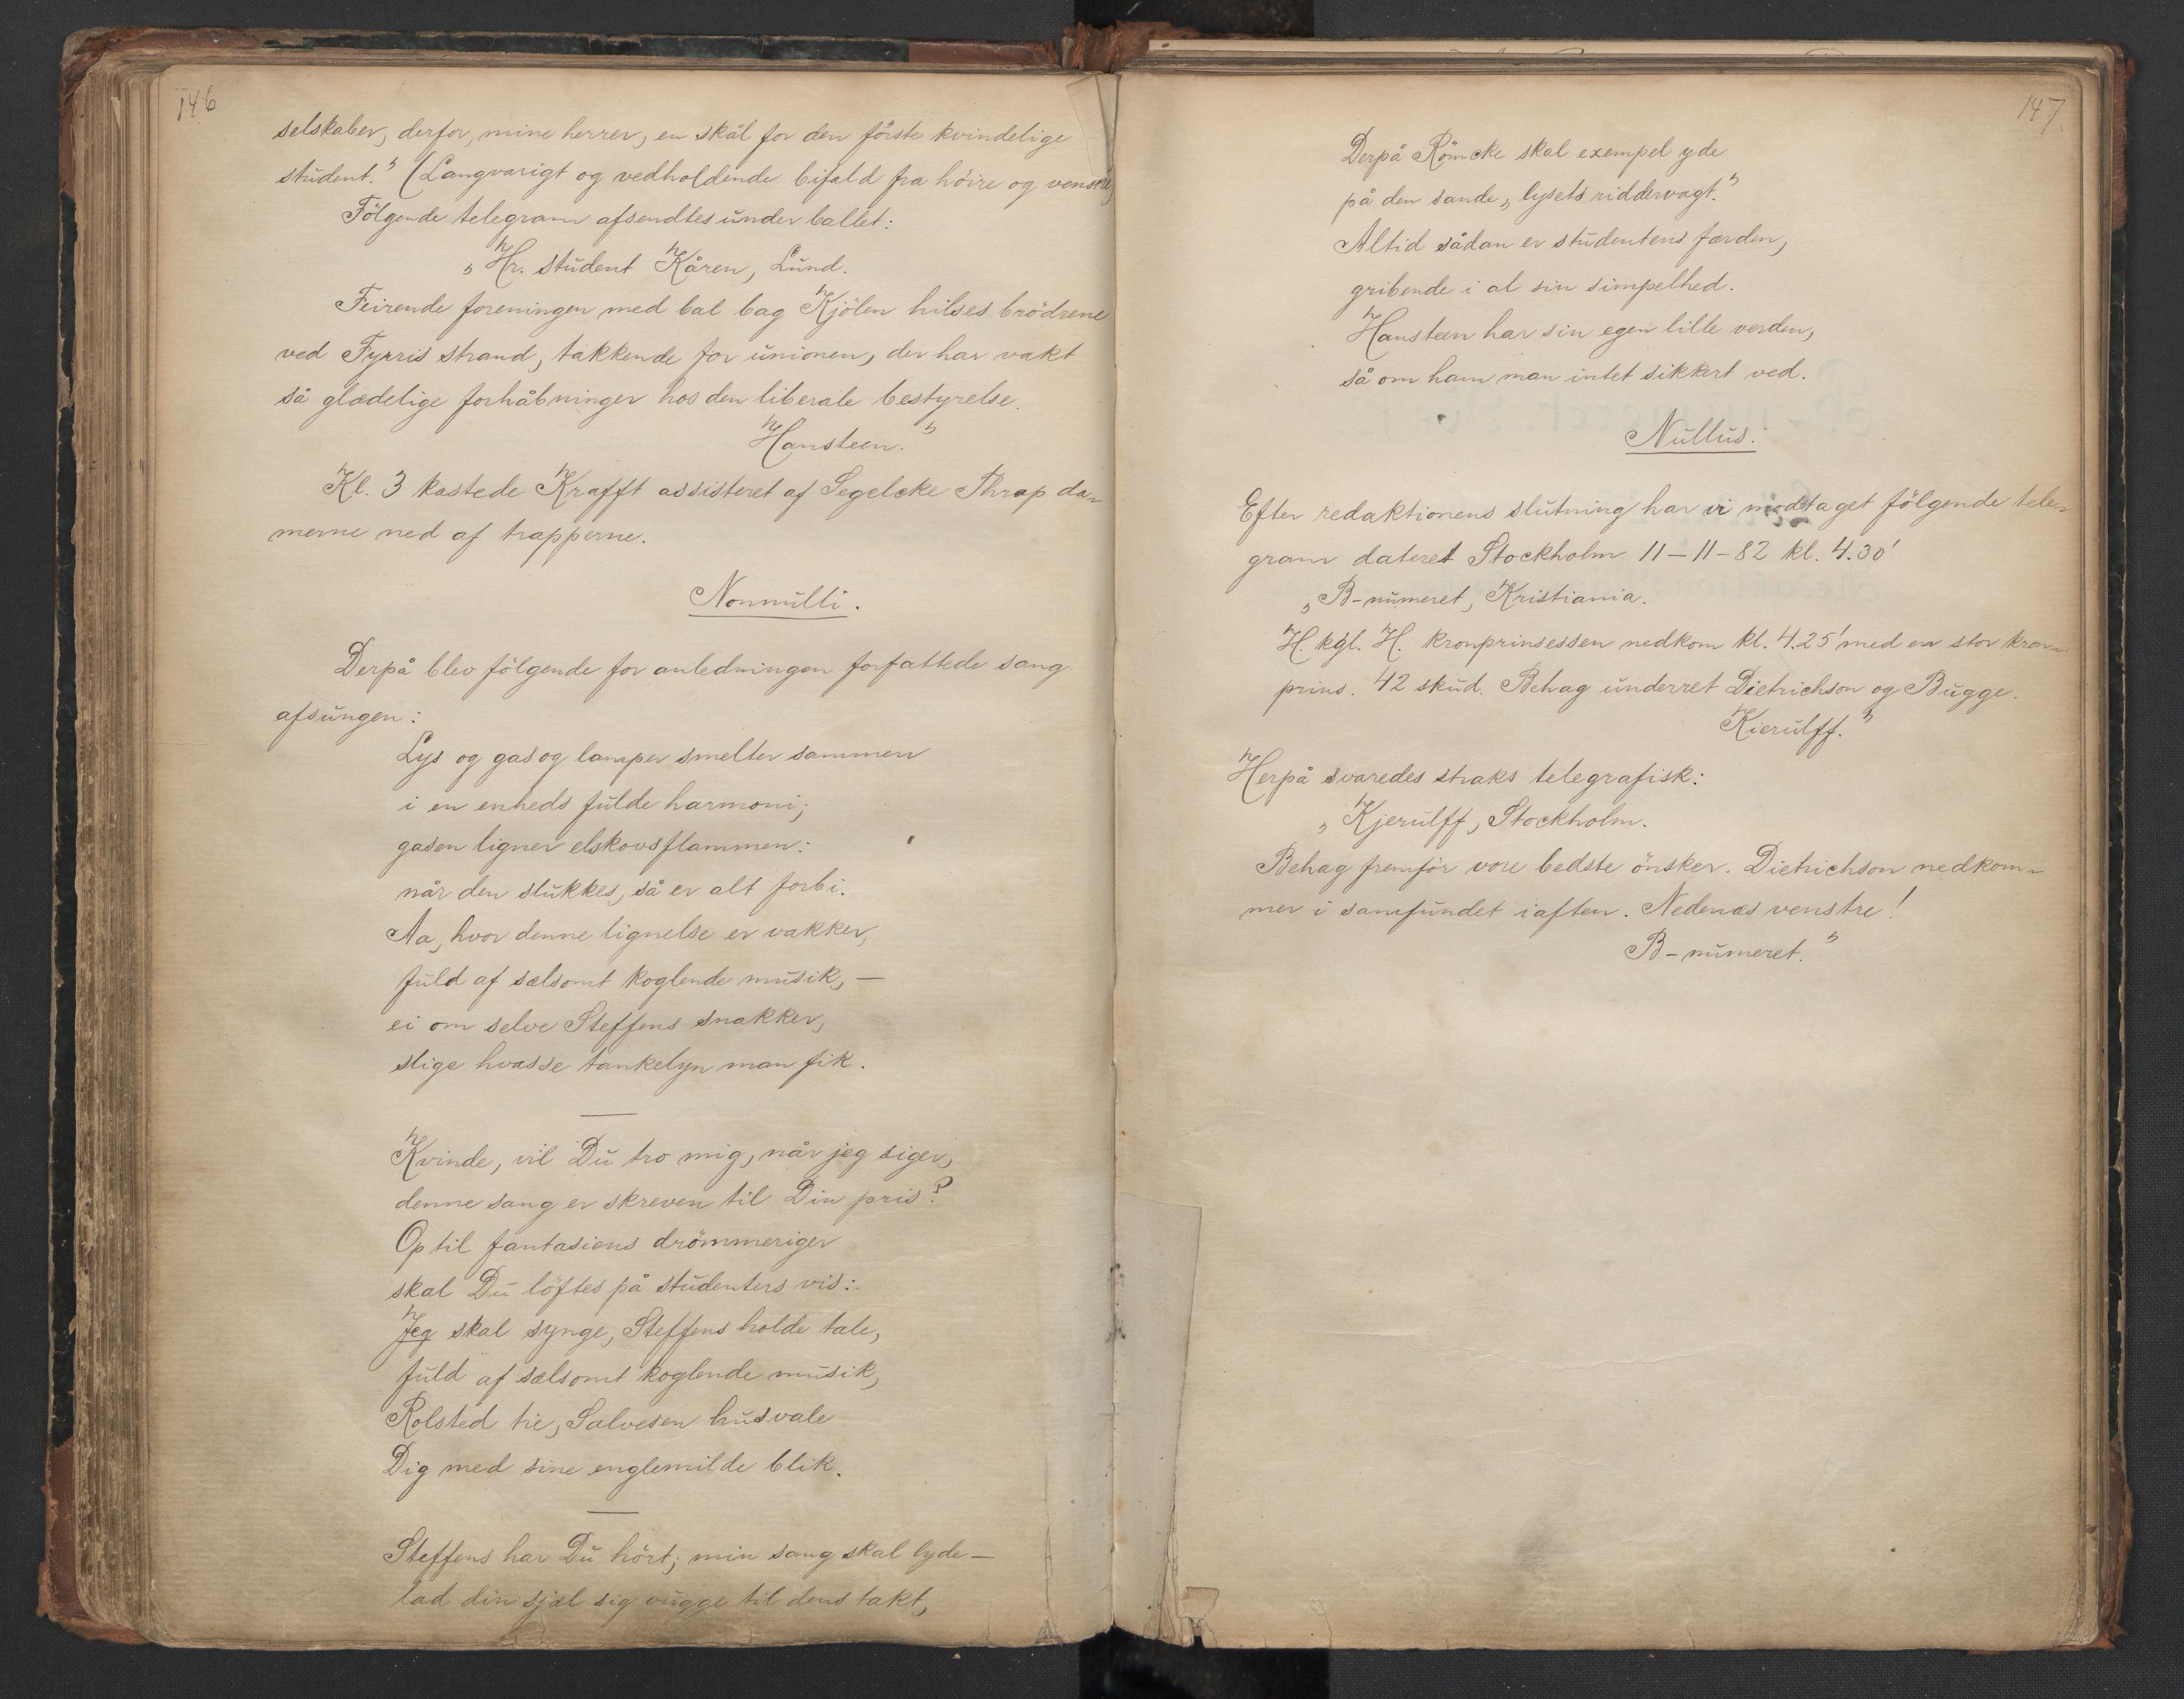 146
selskaber, derfor, mine herrer, en skål for den förste kvindelige
student." (Langvarigt og vedholdende bifald fra höire og venstre)
Fölgende telegram afsendtes under ballet:
„Hr. student Kåren, Lund.
Feirende foreningen med bal bag Kjölen hilses brödrene
ved Fyrris strand, takkende for unionen, der har vakt
så glædelige forhåbninger hos den liberale bestyrelse.
Hansteen."
Kl. 3 kastede Krafft assisteret af Segelcke Thrap da-
merne ned af trapperne.
Nonnulli.
Derpå blev fölgende for anledningen forfattede sang
afsungen:
Lys og gas og lamper smelter sammen
i en enheds fulde harmoni;
gasen ligner elskovsflammen:
når den slukkes, så er alt forbi.
Aa, hvor denne lignelse er vakker,
fuld af sælsomt koglende musik, —
ei om selve Steffens snakker,
slige hvasse tankelyn man fik.
Kvinde, vil Du tro mig, når jeg siger,
denne sang er skreven til Din pris?
Op til fantasiens drömmeriger
skal Du löftes på studenters vis:
Jeg skal synge, Steffens holde tale,
fuld af sælsomt koglende musik,
Rolsted tie, Salvesen husvale
Dig med sine englemilde blik.
Steffens har Du hört; min sang skal lyde —
lad din sjæl sig vugge til dens takt,
147
Derpå Römcke skal exempel yde
på den sande „lysets riddervagt."
Altid sådan er studentens færden,
gribende i al sin simpelhed.
Hansteen har sin egen lille verden,
så om ham man intet sikkert ved.
Nullus.
Efter redaktionens slutning har vi modtaget fölgende tele-
gram dateret Stockholm 11–11–82 kl. 4.30'
„B-numeret, Kristiania.
H. kgl. H. kronprinsessen nedkom kl. 4.25' med en stor kron-
prins. 42 skud. Behag underret Dietrichson og Bugge.
Kierulff."
Herpå svaredes straks telegrafisk:
„Kjerulff, Stockholm.
Behag fremför vore bedste önsker. Dietrichson nedkom-
mer i samfundet iaften. Nedenæs venstre!
B-numeret."